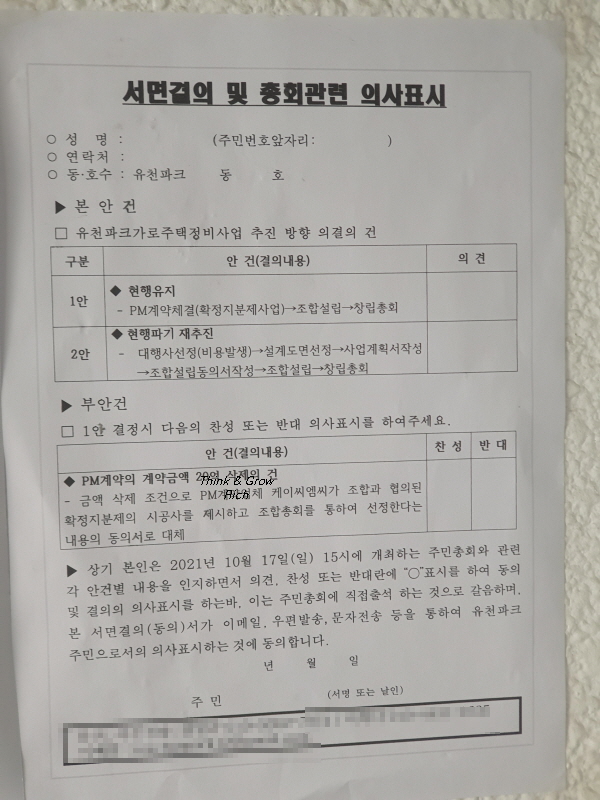 서면결의 및 총회관련 의사표시
○ 성 명 : (주민번호앞자리: )
○ 연락처 :
○ 동·호수 : 유천파크 동 호
▶ 본 안 건
□ 유천파크가로주택정비사업 추진 방향 의결의 건
구분 안 건(결의내용) 의 견
1안
◆ 현행유지
- PM계약체결(확정지분제사업)→조합설립→창립총회
2안
◆ 현행파기 재추진
- 대행사선정(비용발생)→설계도면선정→사업계획서작성
→조합설립동의서작성→조합설립→창립총회
▶ 부안건
□ 1안 결정시 다음의 찬성 또는 반대 의사표시를 하여주세요.
안 건(결의내용) 찬 성 반 대
◆ PM계약의 계약금액 20억 삭제의 건
Think & Grow
Rich
- 금액 삭제 조건으로 케이씨엠씨가 조합과 협의된
확정지분제의 시공사를 제시하고 조합총회를 통하여 선정한다는
내용의 동의서로 대체
▶ 상기 본인은 2021년 10월 17일(일) 15시에 개최하는 주민총회와 관련
각 안건별 내용을 인지하면서 의견, 찬성 또는 반대란에 "○"표시를 하여 동의
및 결의의 의사표시를 하는바, 이는 주민총회에 직접출석 하는 것으로 갈음하며,
본 서면결의(동의)서가 이메일, 우편발송, 문자전송 등을 통하여 유천파크
주민으로서의 의사표시하는 것에 동의합니다.
년 월 일
주 민 (서명 또는 날인)